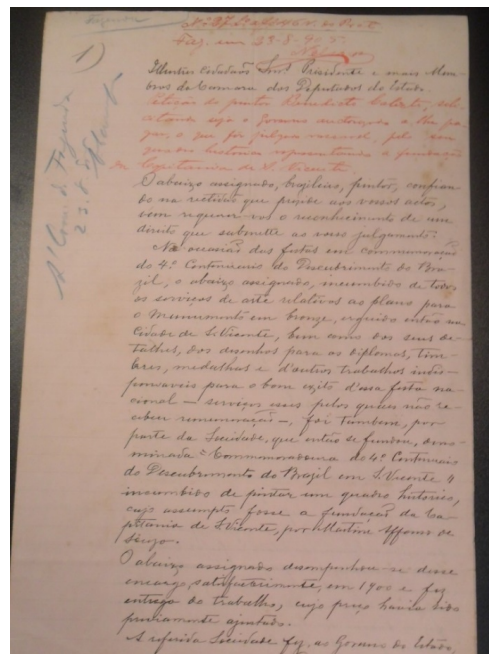 Illustres cidadãos Snrs. Presidente e mais Mem-
bros da Camara dos Deputados do Estado.
Petição do pintor Benedicto Calixto, sol-
o Governo a lhe pa-
gar o que fôr julgado pelo seu
quadro historico representando a fundação
da Capitania de S. Vicente
O abaixo assignado, brazileiro, pintor, confian-
do na rectidão que preside aos vossos actos,
vem requerer-vos o reconhecimento de um
direito que submette ao vosso julgamento.
Na occasião das festas em commemoração
do 4º Centenario do Descobrimento do Bra-
zil, o abaixo assignado, incumbido de todos
os serviços de arte relativos ao plano para
o Monumento em bronze, erguido então na
Cidade de S. Vicente, bem como dos seus de-
talhes, dos desenhos para os diplomas, tim-
bres, medalhas e d'outros trabalhos indis-
pensaveis para o bom exito d'essa festa na-
cional — serviços esses pelos quaes não re-
cebeu remuneração —, foi tambem, por
parte da Sociedade, que então se fundou, deno-
minada "Commemoradora do 4º Centenario
do Descobrimento do Brazil em S. Vicente"
incumbido de pintar um quadro historico,
cujo assumpto fosse a fundação da Ca-
pitania de S. Vicente, por Martim Affonso de
Souza.
O abaixo assignado desempenhou-se desse
encargo, satisfactoriamente, em 1900 e fez
entrega do trabalho, cujo preço havia sido
previamente ajustado.
A referida Sociedade fez, ao Governo do Estado,
1)
1ª Com. de Fazenda
23.8.